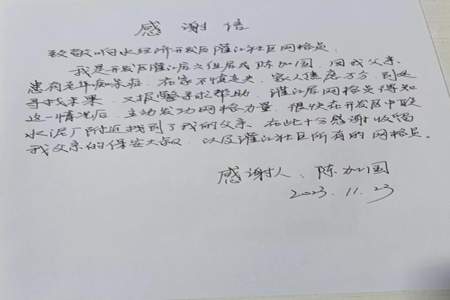 感谢信
致敬响水经济开发区灌江社区网格员
我是开发区灌江居六组居民陈加国，因我父亲
患有老年痴呆症，在家不慎走失，家人焦急万分，到处
寻找未果，又报警寻求帮助，灌江居网格员得知
这一情况后，主动发动网格力量，很快在开发区中联
水泥厂附近找到了我的父亲。在此十分感谢收留
我父亲的保安大叔，以及灌江社区所有的网格员。
感谢人、陈加国
2023.11.23